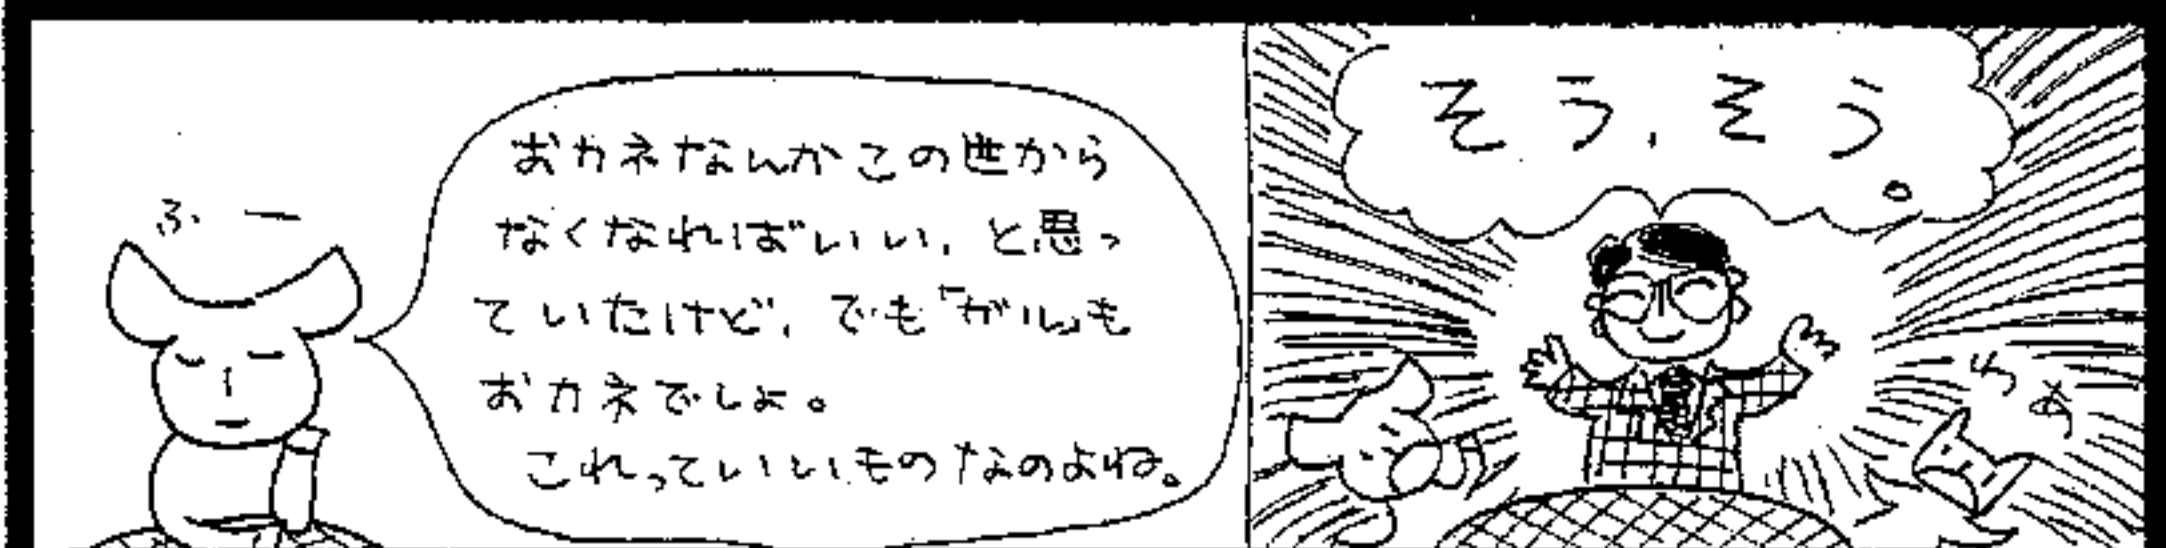 ふー
おカネなんかこの世から
なくなればいい、と思っ
ていたけど、でも「ガル」も
おカネでしょ。
これっていいものなのよね。
そう、そう。
わぁ